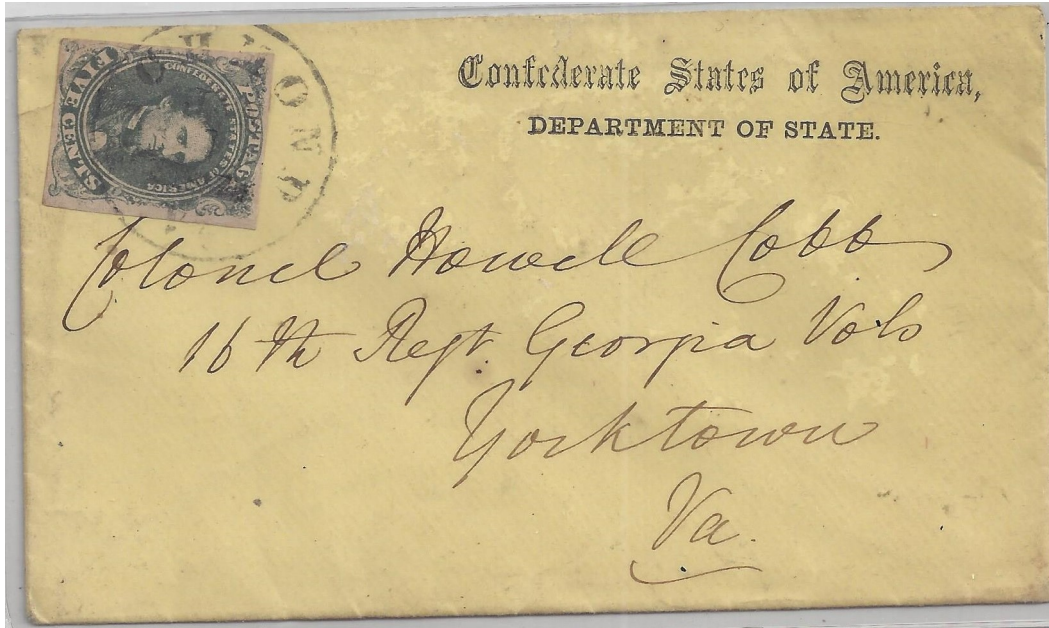 FIVE CENTS
POSTAGE
CONFEDERATE STATES OF AMERICA
Confederate States of America,
DEPARTMENT OF STATE.
Colonel Howell Cobb
16th Regt. Georgia Vols
Yorktown
Va.